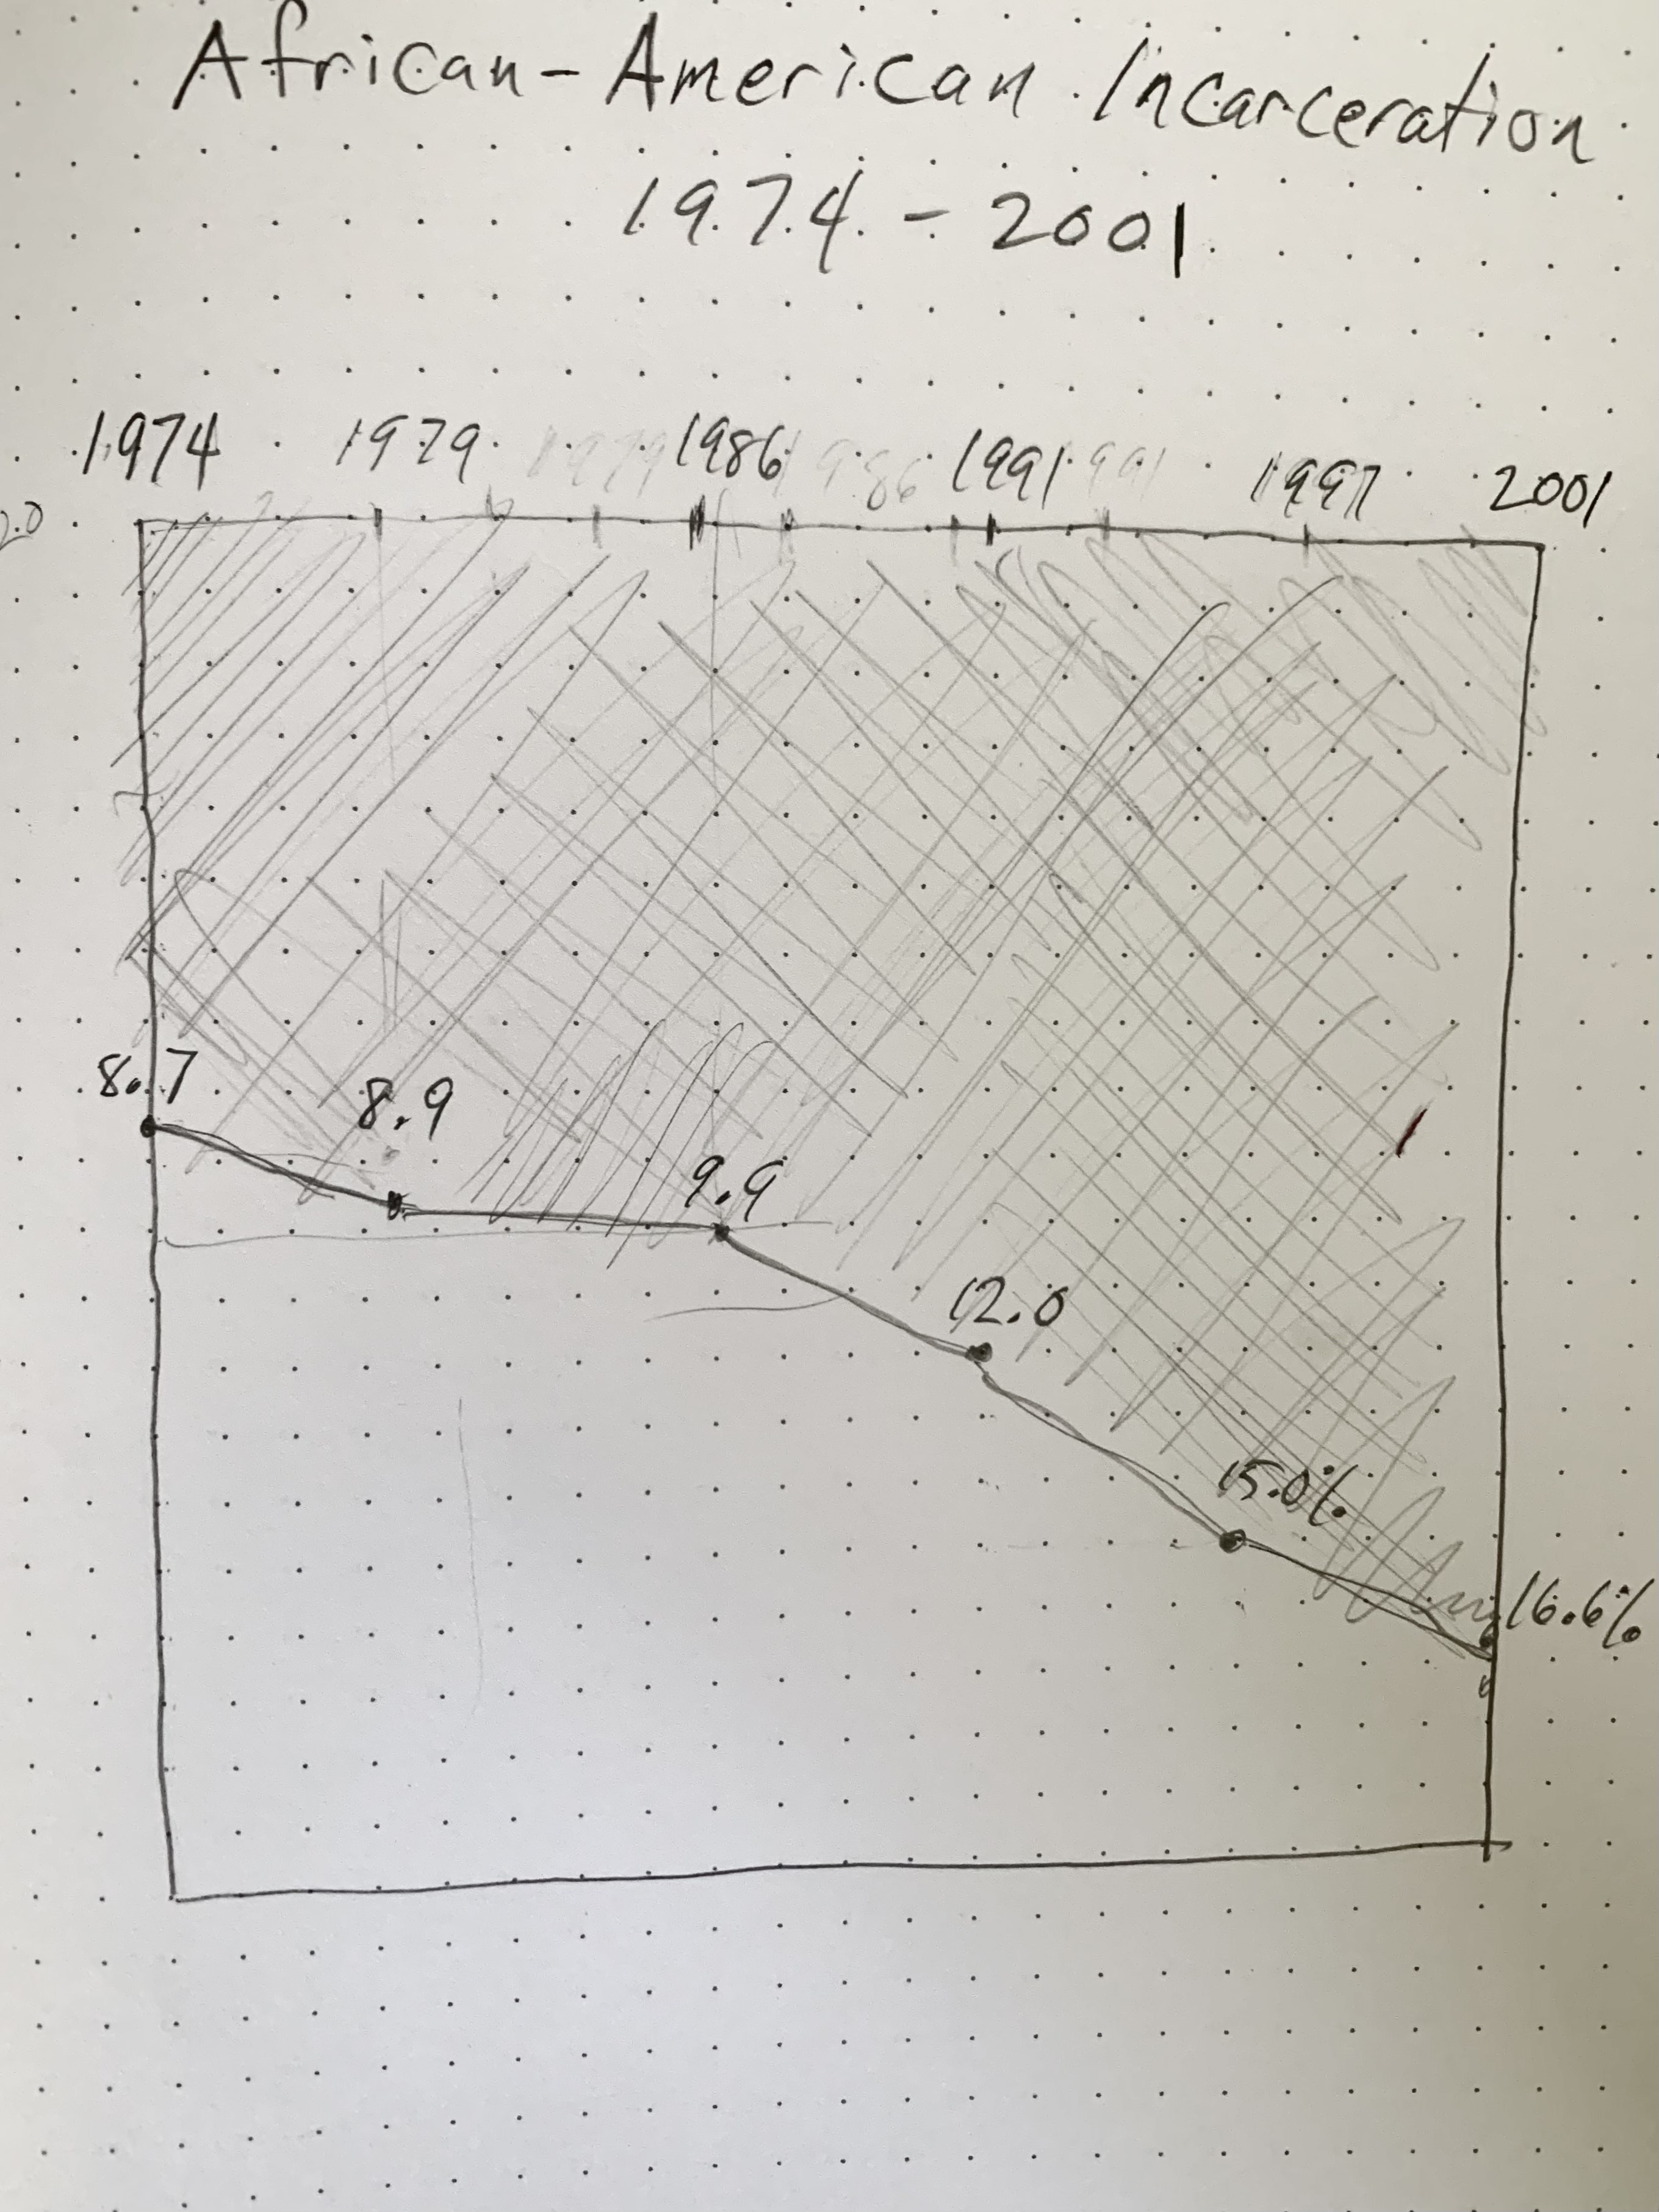 African-American Incarceration
1974 - 2001
1974 1979 1979 1986 986 1991 991 1997 2001
20
8.7
8.9
9.9
12.0
15.0%
16.6%